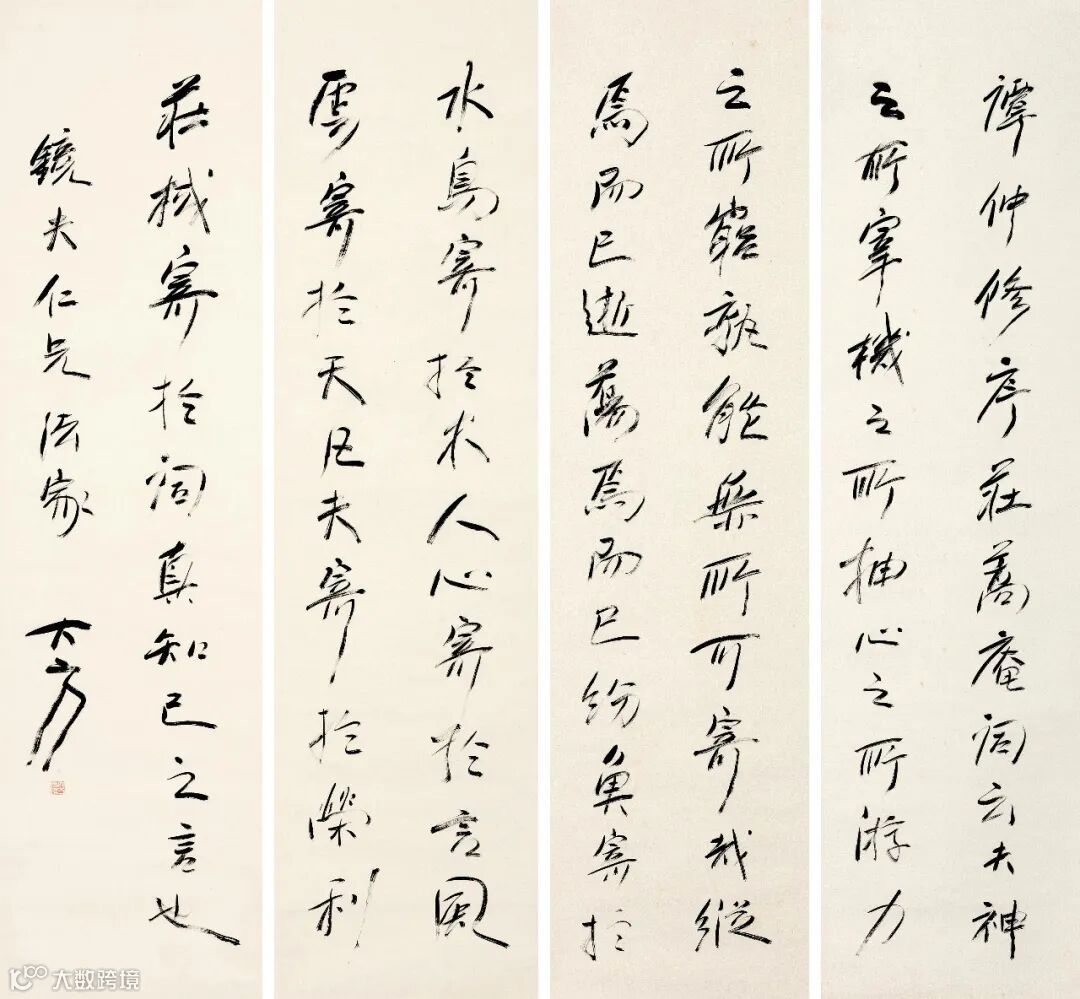 譚仲修序莊蒿庵詞云夫神
之所宰機之所抽心之所游力
之所竆孰能無所可寄哉縱
焉而已逝蕩焉而已紛魚寄於
水鳥寄於木人心寄於言風
雲寄於天凡夫寄於榮利
莊棫寄於詞真知己之言也
鏡夫仁兄法家 大方
大数跨境